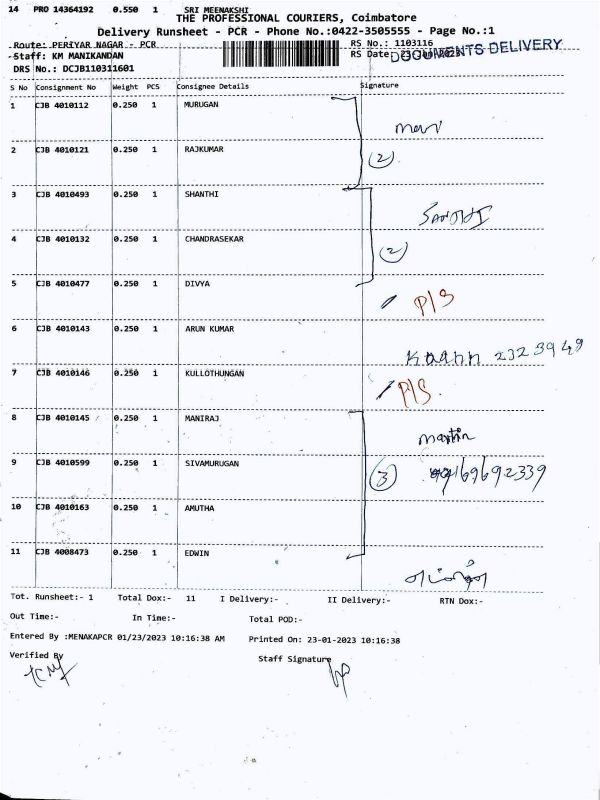 14 PRO 14364192 0.550 1 SRI MEENAKSHI
THE PROFESSIONAL COURIERS, Coimbatore
Delivery Runsheet - PCR - Phone No.:0422-3505555 - Page No.:1
Route: PERIYAR NAGAR - PCR RS No.: 1103116
Staff: KM MANIKANDAN RS Date: 23 2023 DOCUMENTS DELIVERY
DRS No.: DCJB110311601
S No Consignment No Weight PCS Consignee Details Signature
1 CJB 4010112 0.250 1 MURUGAN
2 CJB 4010121 0.250 1 RAJKUMAR (2)
3 CJB 4010493 0.250 1 SHANTHI
4 CJB 4010132 0.250 1 CHANDRASEKAR (2)
5 CJB 4010477 0.250 1 DIVYA
P/S
6 CJB 4010143 0.250 1 ARUN KUMAR
2323949
7 CJB 4010146 0.250 1 KULLOTHUNGAN
P/S.
8 CJB 4010145 0.250 1 MANIRAJ
martin
9 CJB 4010599 0.250 1 SIVAMURUGAN (3)
10 CJB 4010163 0.250 1 AMUTHA
11 CJB 4008473 0.250 1 EDWIN
Tot. Runsheet:- 1 Total Dox:- 11 I Delivery:- II Delivery:- RTN Dox:-
Out Time:- In Time:- Total POD:-
Entered By :MENAKAPCR 01/23/2023 10:16:38 AM Printed On: 23-01-2023 10:16:38
Verified By Staff Signature